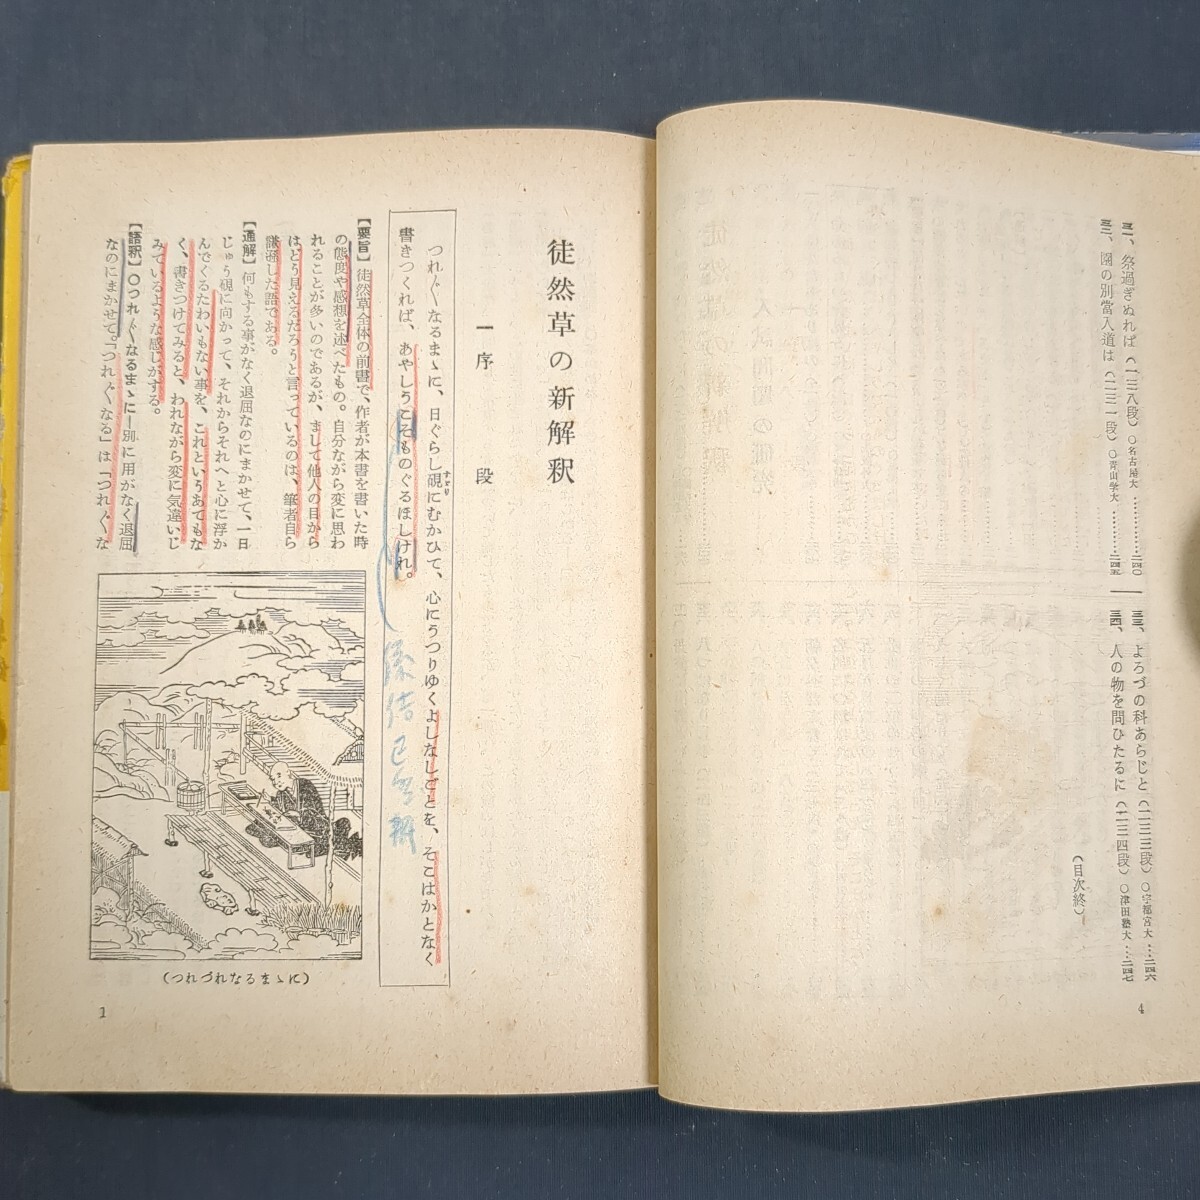 三一、祭過ぎぬれば(一三八段)〇名古屋大…………二四〇
三二、園の別当入道は(二三一段)〇青山学大…………二四五
三三、よろづの科あらじと(二三三段)〇宇都宮大…二四六
三四、人の物を問ひたるに(二三四段)〇津田塾大…二四七
(目次終)
4
徒然草の新解釈
一 序 段
つれ〴〵なるまゝに、日ぐらし硯にむかひて、心にうつりゆくよしなしごとを、そこはかとなく
すずり
書きつくれば、あやしうこそものぐるほしけれ。
【要旨】徒然草全体の前書で、作者が本書を書いた時
の態度や感想を述べたもの。自分ながら変に思わ
れることが多いのであるが、まして他人の目から
はどう見えるだろうと言っているのは、筆者自ら
謙遜した語である。
【通解】何もする事がなく退屈なのにまかせて、一日
じゅう硯に向かって、それからそれへと心に浮か
んでくるたわいもない事を、これというあてもな
く、書きつけてみると、われながら変に気違いじ
みているような感じがする。
【語釈】〇つれ〴〵なるまゝに―別に用がなく退屈
なのにまかせて。「つれ〴〵なる」は「つれ〴〵な
(つれづれなるまゝに)
1